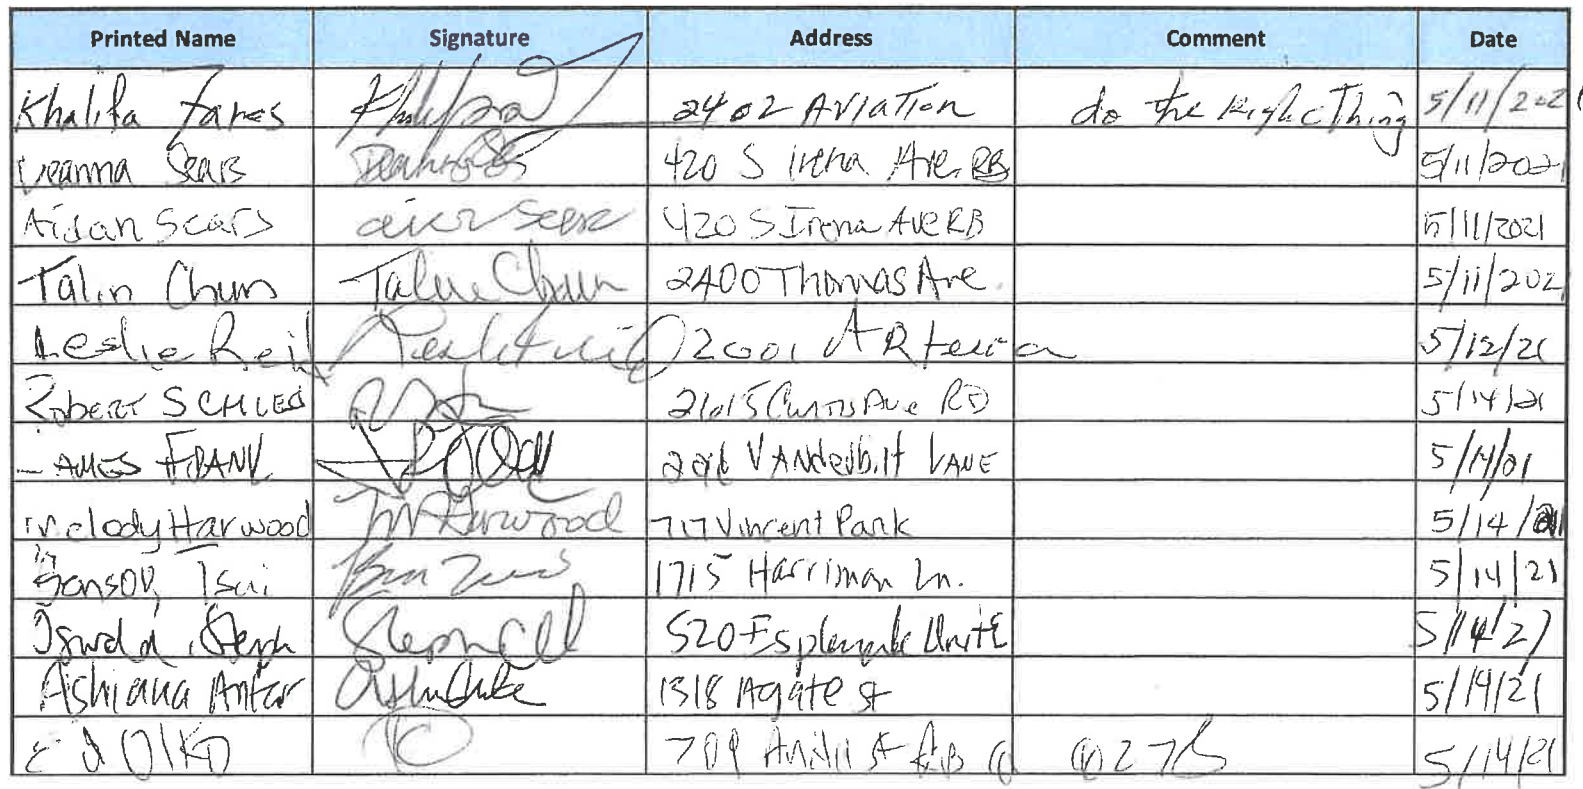 Printed Name Signature Address Comment Date
Khalifa Fares 2402 Aviation do the Right Thing 5/11/2021
Deanna Sears 420 S Irena Ave. RB 5/11/2021
Aidan Sears aidan sears 420 S Irena Ave RB 5/11/2021
Talin Chun Taline Chun 2400 Thomas Ave. 5/11/202
Leslie Reid 2001 Artesia 5/12/21
Robert SCHLESS 2615 Curtis Ave RD 5/14/21
AMES FRANK Vanderbilt LANE 5/14/21
Melody Harwood M Harwood 717 Vincent Park 5/14/21
Benson Tsai 1715 Harriman Ln. 5/14/21
Steph 520 Esplanade Unit E 5/14/21
Ashiana Antar 1318 Agate St 5/14/21
Ed 709 St RB 90275 5/14/21